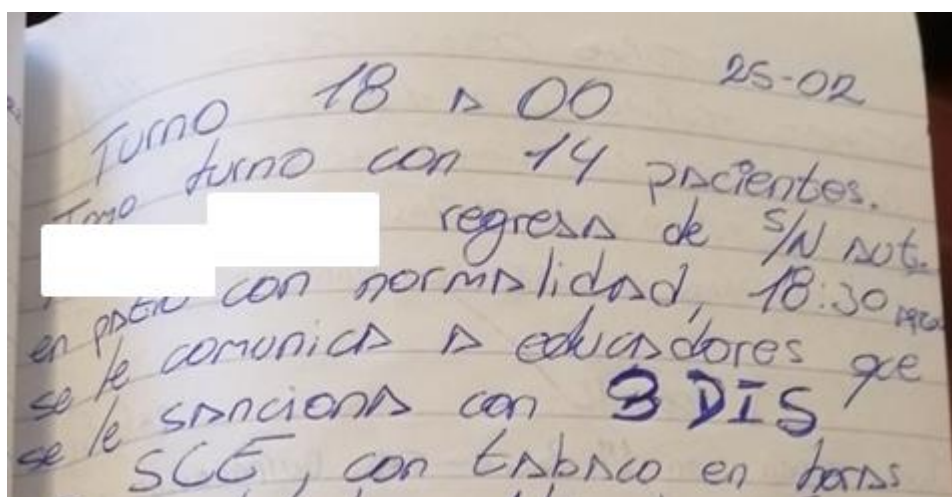 25-02
Turno 18 a 00
Tomo turno con 14 pacientes.
regresa de S/N aut.
en patio con normalidad, 18:30
se le comunica a educadores que
se le sanciona con 3 DIS
SCE, con tabaco en horas